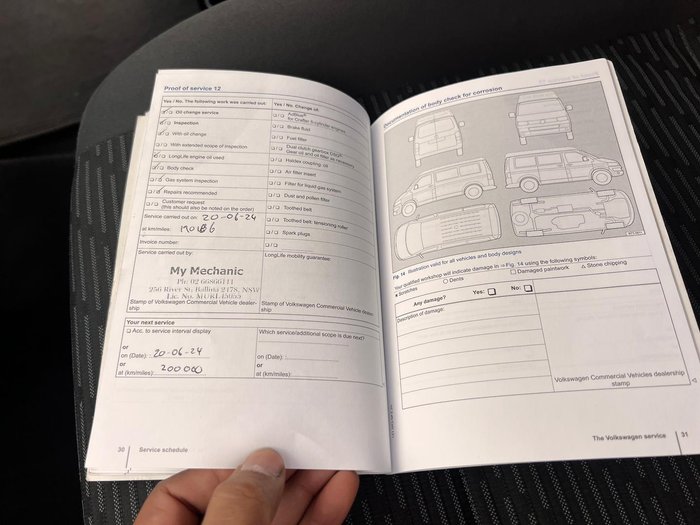 Proof of service 12
Yes / No. The following work was carried out:
Oil change service
Inspection
With oil change
With extended scope of inspection
LongLife engine oil used
Body check
Gas system inspection
Repairs recommended
Customer request
(this should also be noted on the order)
Service carried out on: 20-06-24
at km/miles:
Invoice number:
Service carried out by:
My Mechanic
256 River St, Ballina 2478, NSW
Stamp of Volkswagen Commercial Vehicle dealer-
ship
Yes / No. Change of:
AdBlue®
for Crafter 5-cylinder engines
Brake fluid
Fuel filter
Dual clutch gearbox DSG®
Gear oil and oil filter
Haldex coupling: oil
Air filter insert
Filter for liquid gas system
Dust and pollen filter
Toothed belt
Toothed belt: tensioning roller
Spark plugs
LongLife mobility guarantee:
Stamp of Volkswagen Commercial Vehicle dealer-
ship
Your next service
Acc. to service interval display
or
on (Date): 20-06-24
or
at (km/miles): 200000
Which service/additional scope is due next?
on (Date):
or
at (km/miles):
30 Service schedule
Documentation of body check for corrosion
Fig. 14 Illustration valid for all vehicles and body designs
Your qualified workshop will indicate damage in ⇒ Fig. 14 using the following symbols:
Scratches
○ Dents
□ Damaged paintwork
△ Stone chipping
Any damage?
Yes: □
No: □
Description of damage:
Volkswagen Commercial Vehicles dealership
stamp
The Volkswagen service 31